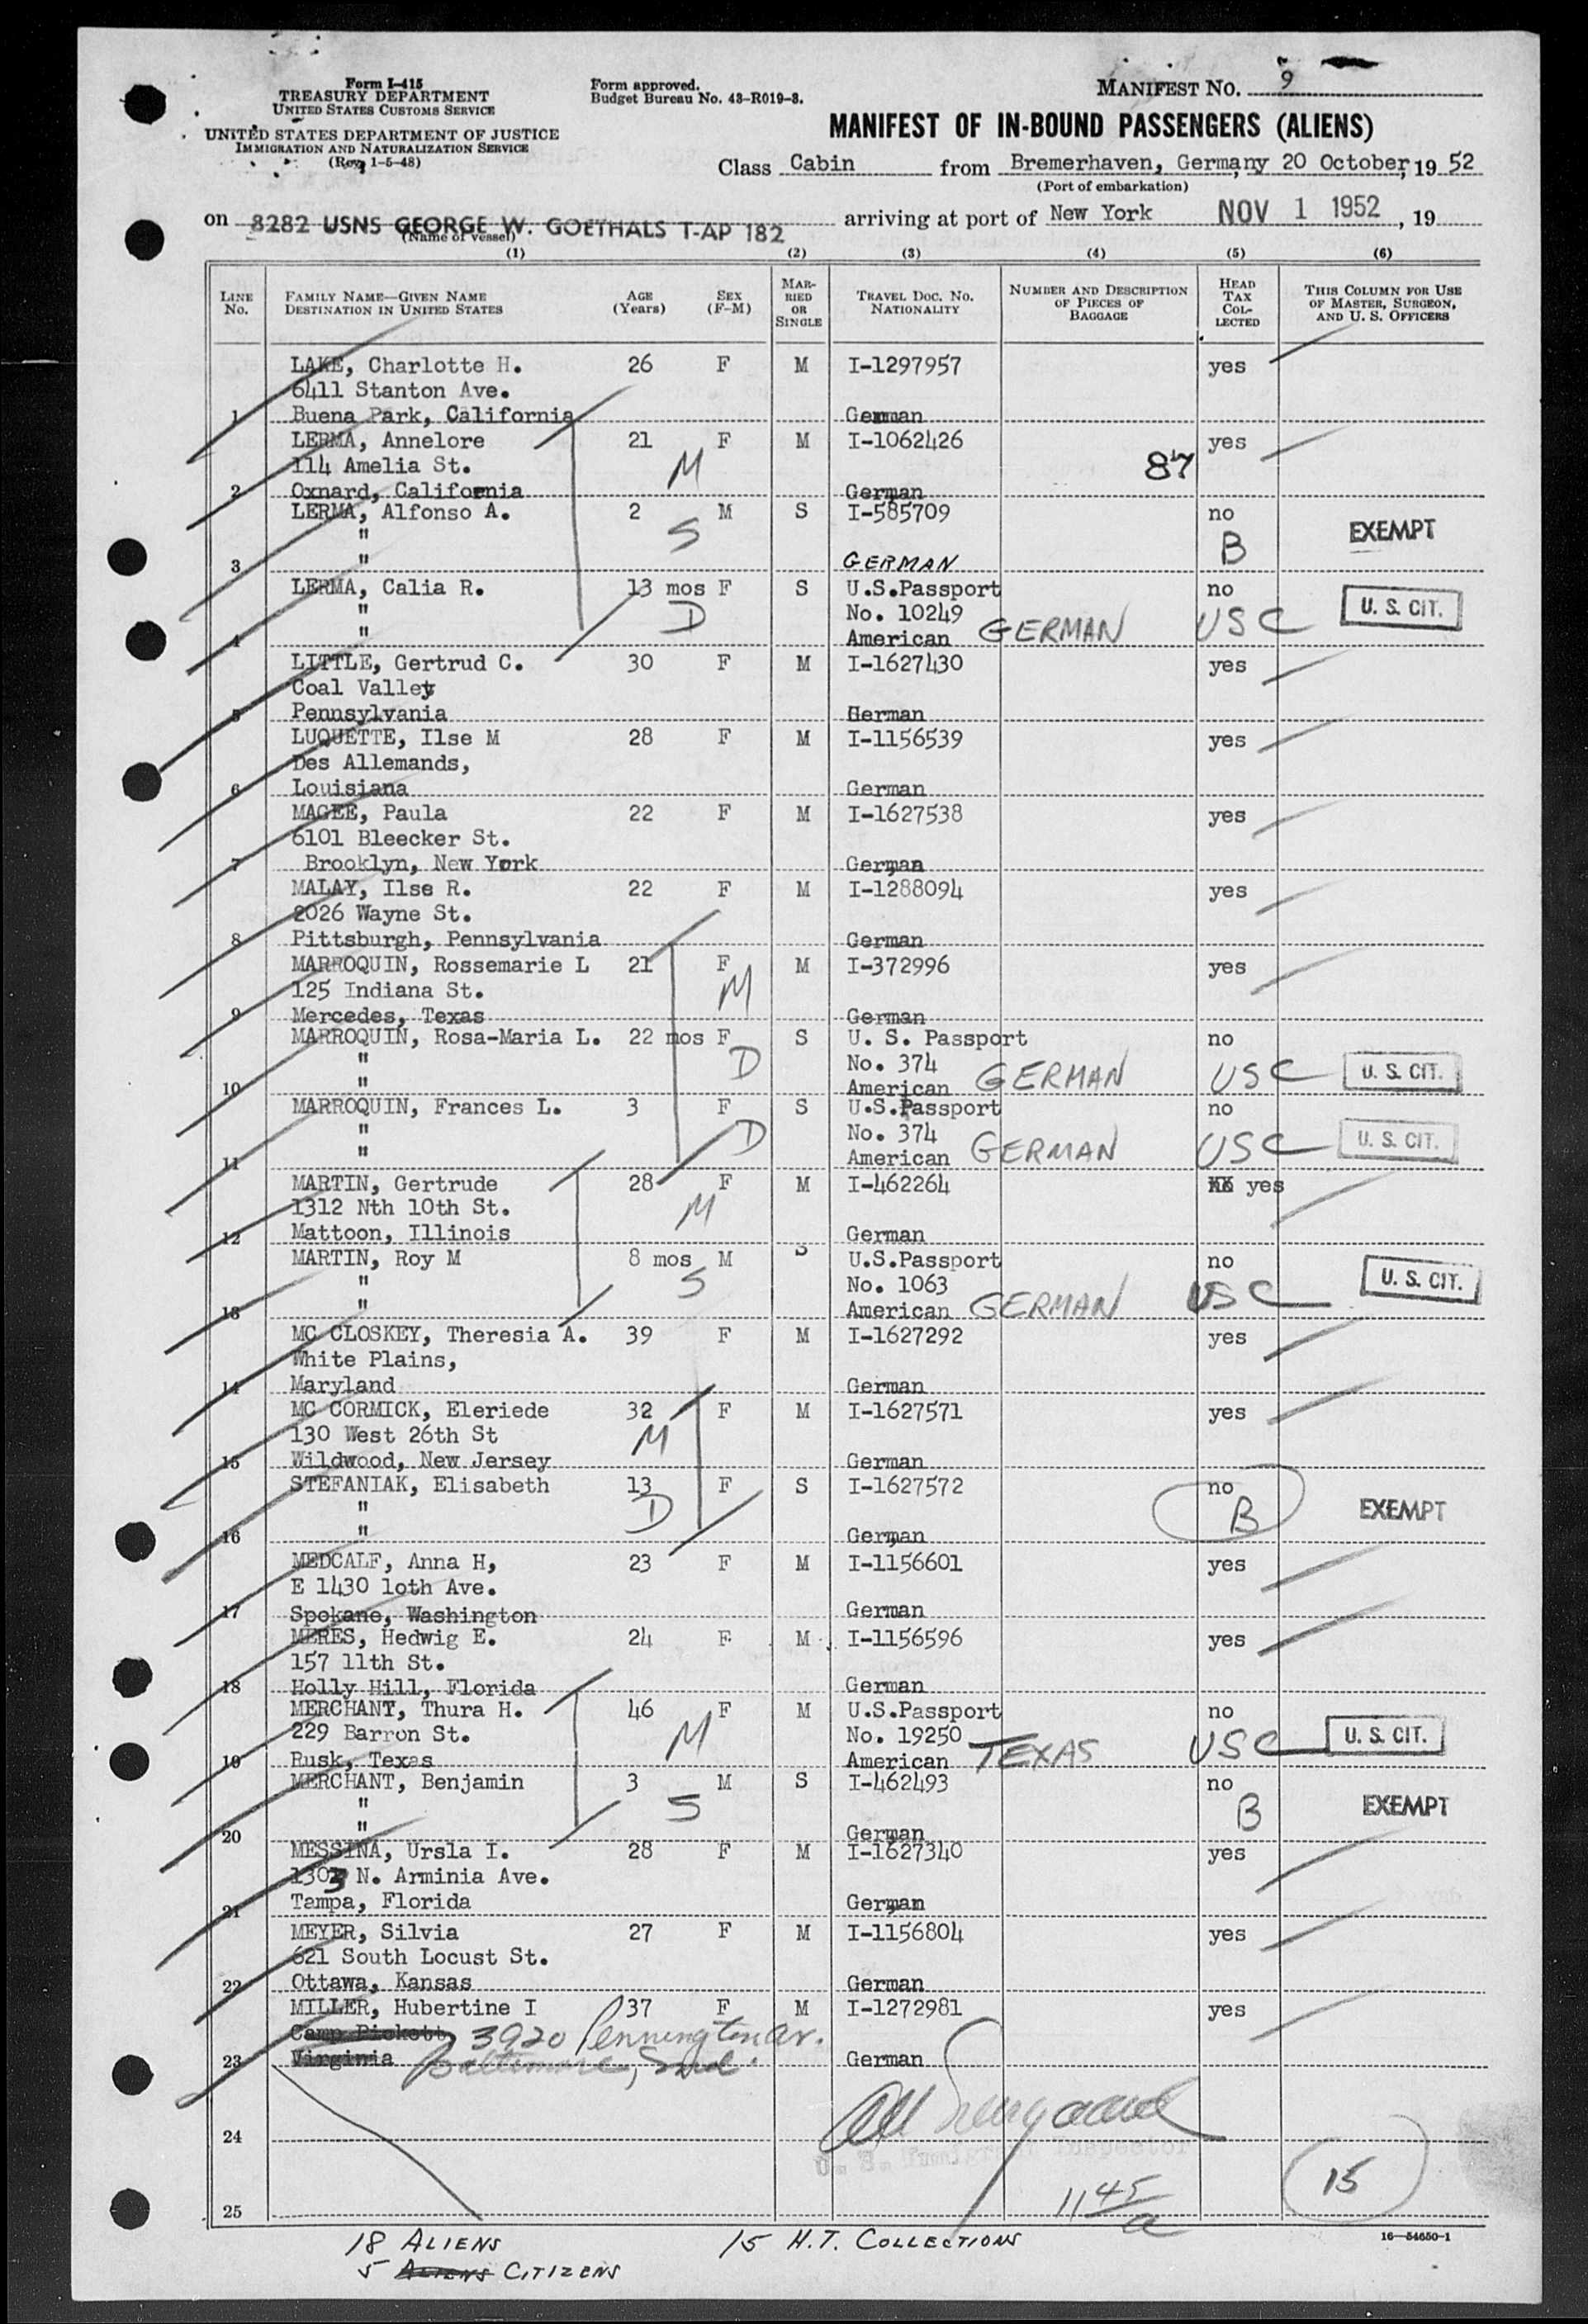 Form I-415
TREASURY DEPARTMENT
UNITED STATES CUSTOMS SERVICE
UNITED STATES DEPARTMENT OF JUSTICE
IMMIGRATION AND NATURALIZATION SERVICE
(Rev. 1-5-48)
Form approved.
Budget Bureau No. 43-R019-3.
MANIFEST NO. 9
MANIFEST OF IN-BOUND PASSENGERS (ALIENS)
Class Cabin from Bremerhaven, Germany 20 October, 19 52
(Port of embarkation)
on 8282 USNS GEORGE W. GOETHALS T-AP 182 arriving at port of New York NOV 1 1952, 19
(Name of vessel)
(1) (2) (3) (4) (5) (6)
LINE No. FAMILY NAME—GIVEN NAME DESTINATION IN UNITED STATES AGE (Years) SEX (F-M) MARRIED OR SINGLE TRAVEL DOC. NO. NATIONALITY NUMBER AND DESCRIPTION OF PIECES OF BAGGAGE HEAD TAX COLLECTED THIS COLUMN FOR USE OF MASTER, SURGEON, AND U. S. OFFICERS
LAKE, Charlotte H. 26 F M I-1297957 yes
6411 Stanton Ave.
1 Buena Park, California German
LERMA, Annelore 21 F M I-1062426 yes
114 Amelia St. M 87
2 Oxnard, California German
LERMA, Alfonso A. 2 M S I-585709 no EXEMPT
" S B
3 " GERMAN
LERMA, Calia R. 13 mos F S U.S.Passport no U. S. CIT.
" D No. 10249
4 " American GERMAN USC
LITTLE, Gertrud C. 30 F M I-1627430 yes
Coal Valley
5 Pennsylvania German
LUQUETTE, Ilse M 28 F M I-1156539 yes
Des Allemands,
6 Louisiana German
MAGEE, Paula 22 F M I-1627538 yes
6101 Bleecker St.
7 Brooklyn, New York German
MALAY, Ilse R. 22 F M I-1288094 yes
2026 Wayne St.
8 Pittsburgh, Pennsylvania German
MARROQUIN, Rossemarie L 21 F M I-372996 yes
125 Indiana St. M
9 Mercedes, Texas German
MARROQUIN, Rosa-Maria L. 22 mos F S U. S. Passport no
" D No. 374 U. S. CIT.
10 " American GERMAN USC
MARROQUIN, Frances L. 3 F S U.S.Passport no
" D No. 374 U. S. CIT.
11 " American GERMAN USC
MARTIN, Gertrude 28 F M I-462264 yes
1312 Nth 10th St. M
12 Mattoon, Illinois German
MARTIN, Roy M 8 mos M S U.S.Passport no
" S No. 1063 U. S. CIT.
13 " American GERMAN USC
MC CLOSKEY, Theresia A. 39 F M I-1627292 yes
White Plains,
14 Maryland German
MC CORMICK, Eleriede 32 F M I-1627571 yes
130 West 26th St M
15 Wildwood, New Jersey German
STEFANIAK, Elisabeth 13 F S I-1627572 no
" D B EXEMPT
16 " German
MEDCALF, Anna H, 23 F M I-1156601 yes
E 1430 loth Ave.
17 Spokane, Washington German
MERES, Hedwig E. 24 F M I-1156596 yes
157 11th St.
18 Holly Hill, Florida German
MERCHANT, Thura H. 46 F M U.S.Passport no
229 Barron St. M No. 19250 U. S. CIT.
19 Rusk, Texas American TEXAS USC
MERCHANT, Benjamin 3 M S I-462493 no
" S B EXEMPT
20 " German
MESSINA, Ursla I. 28 F M I-1627340 yes
1303 N. Arminia Ave.
21 Tampa, Florida German
MEYER, Silvia 27 F M I-1156804 yes
621 South Locust St.
22 Ottawa, Kansas German
MILLER, Hubertine I 37 F M I-1272981 yes
Camp Pickett, 3920 Pennington Av.
23 Virginia Baltimore, Md. German
24
U. S. Immigrant Inspector
11 45 a 15
25
18 ALIENS 15 H.T. COLLECTIONS
5 ALIENS CITIZENS
16—54650-1